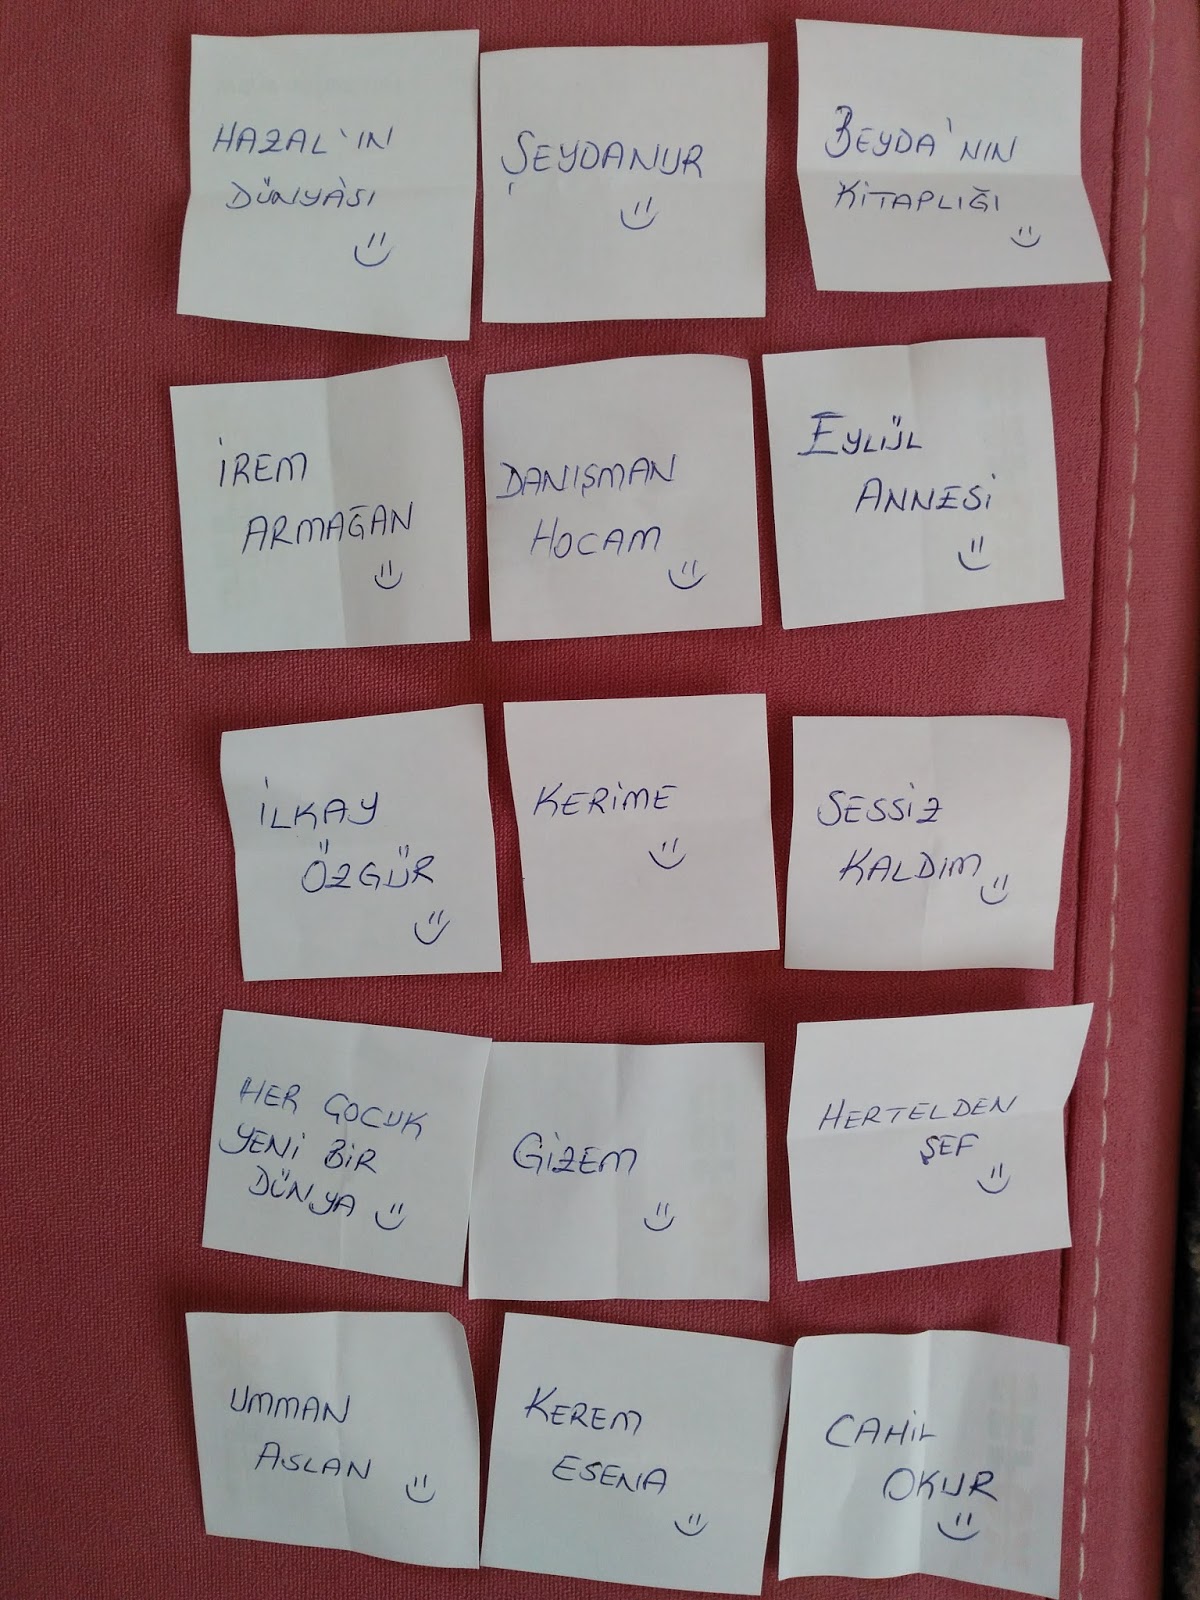 HAZAL'IN
DÜNYASI
ŞEYDANUR
BEYDA'NIN
KİTAPLIĞI
İREM
ARMAĞAN
DANIŞMAN
HOCAM
EYLÜL
ANNESİ
İLKAY
ÖZGÜR
KERİME
SESSİZ
KALDIM
HER ÇOCUK
YENİ BİR
DÜNYA
GİZEM
HERTELDEN
ŞEF
UMMAN
ASLAN
KEREM
ESENA
CAHİL
OKUR